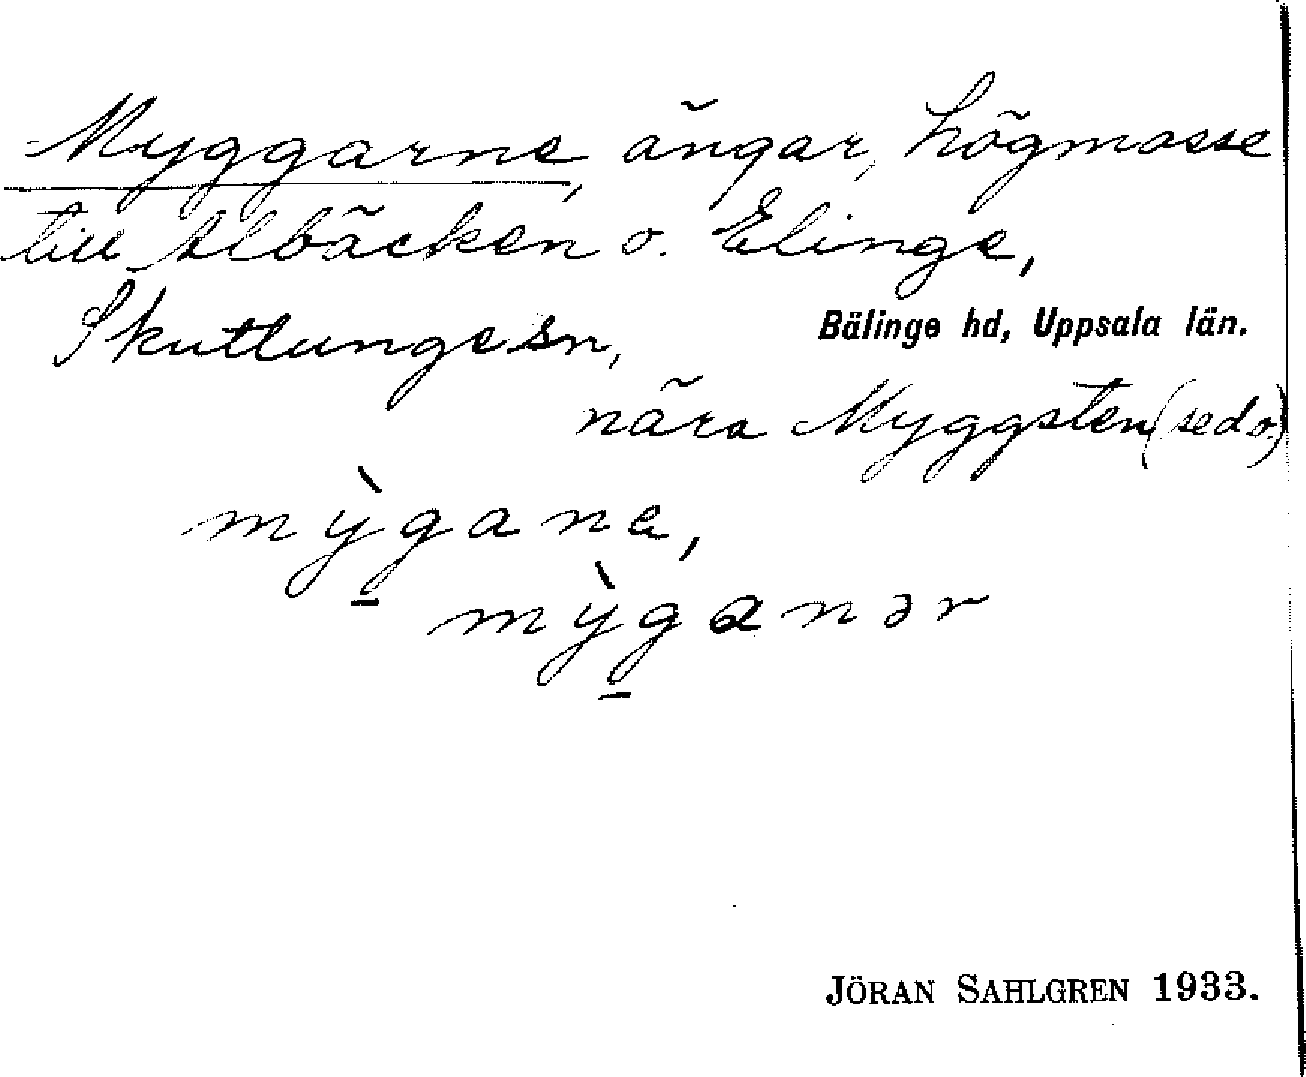 Myggarne, ängar, högmosse
till Albäcken o. Elinge,
Skuttunge sn,
Bälinge hd, Uppsala län.
nära Myggsten (se d.o.)
mỳg̠ana,
mỳg̠anər
JÖRAN SAHLGREN 1933.